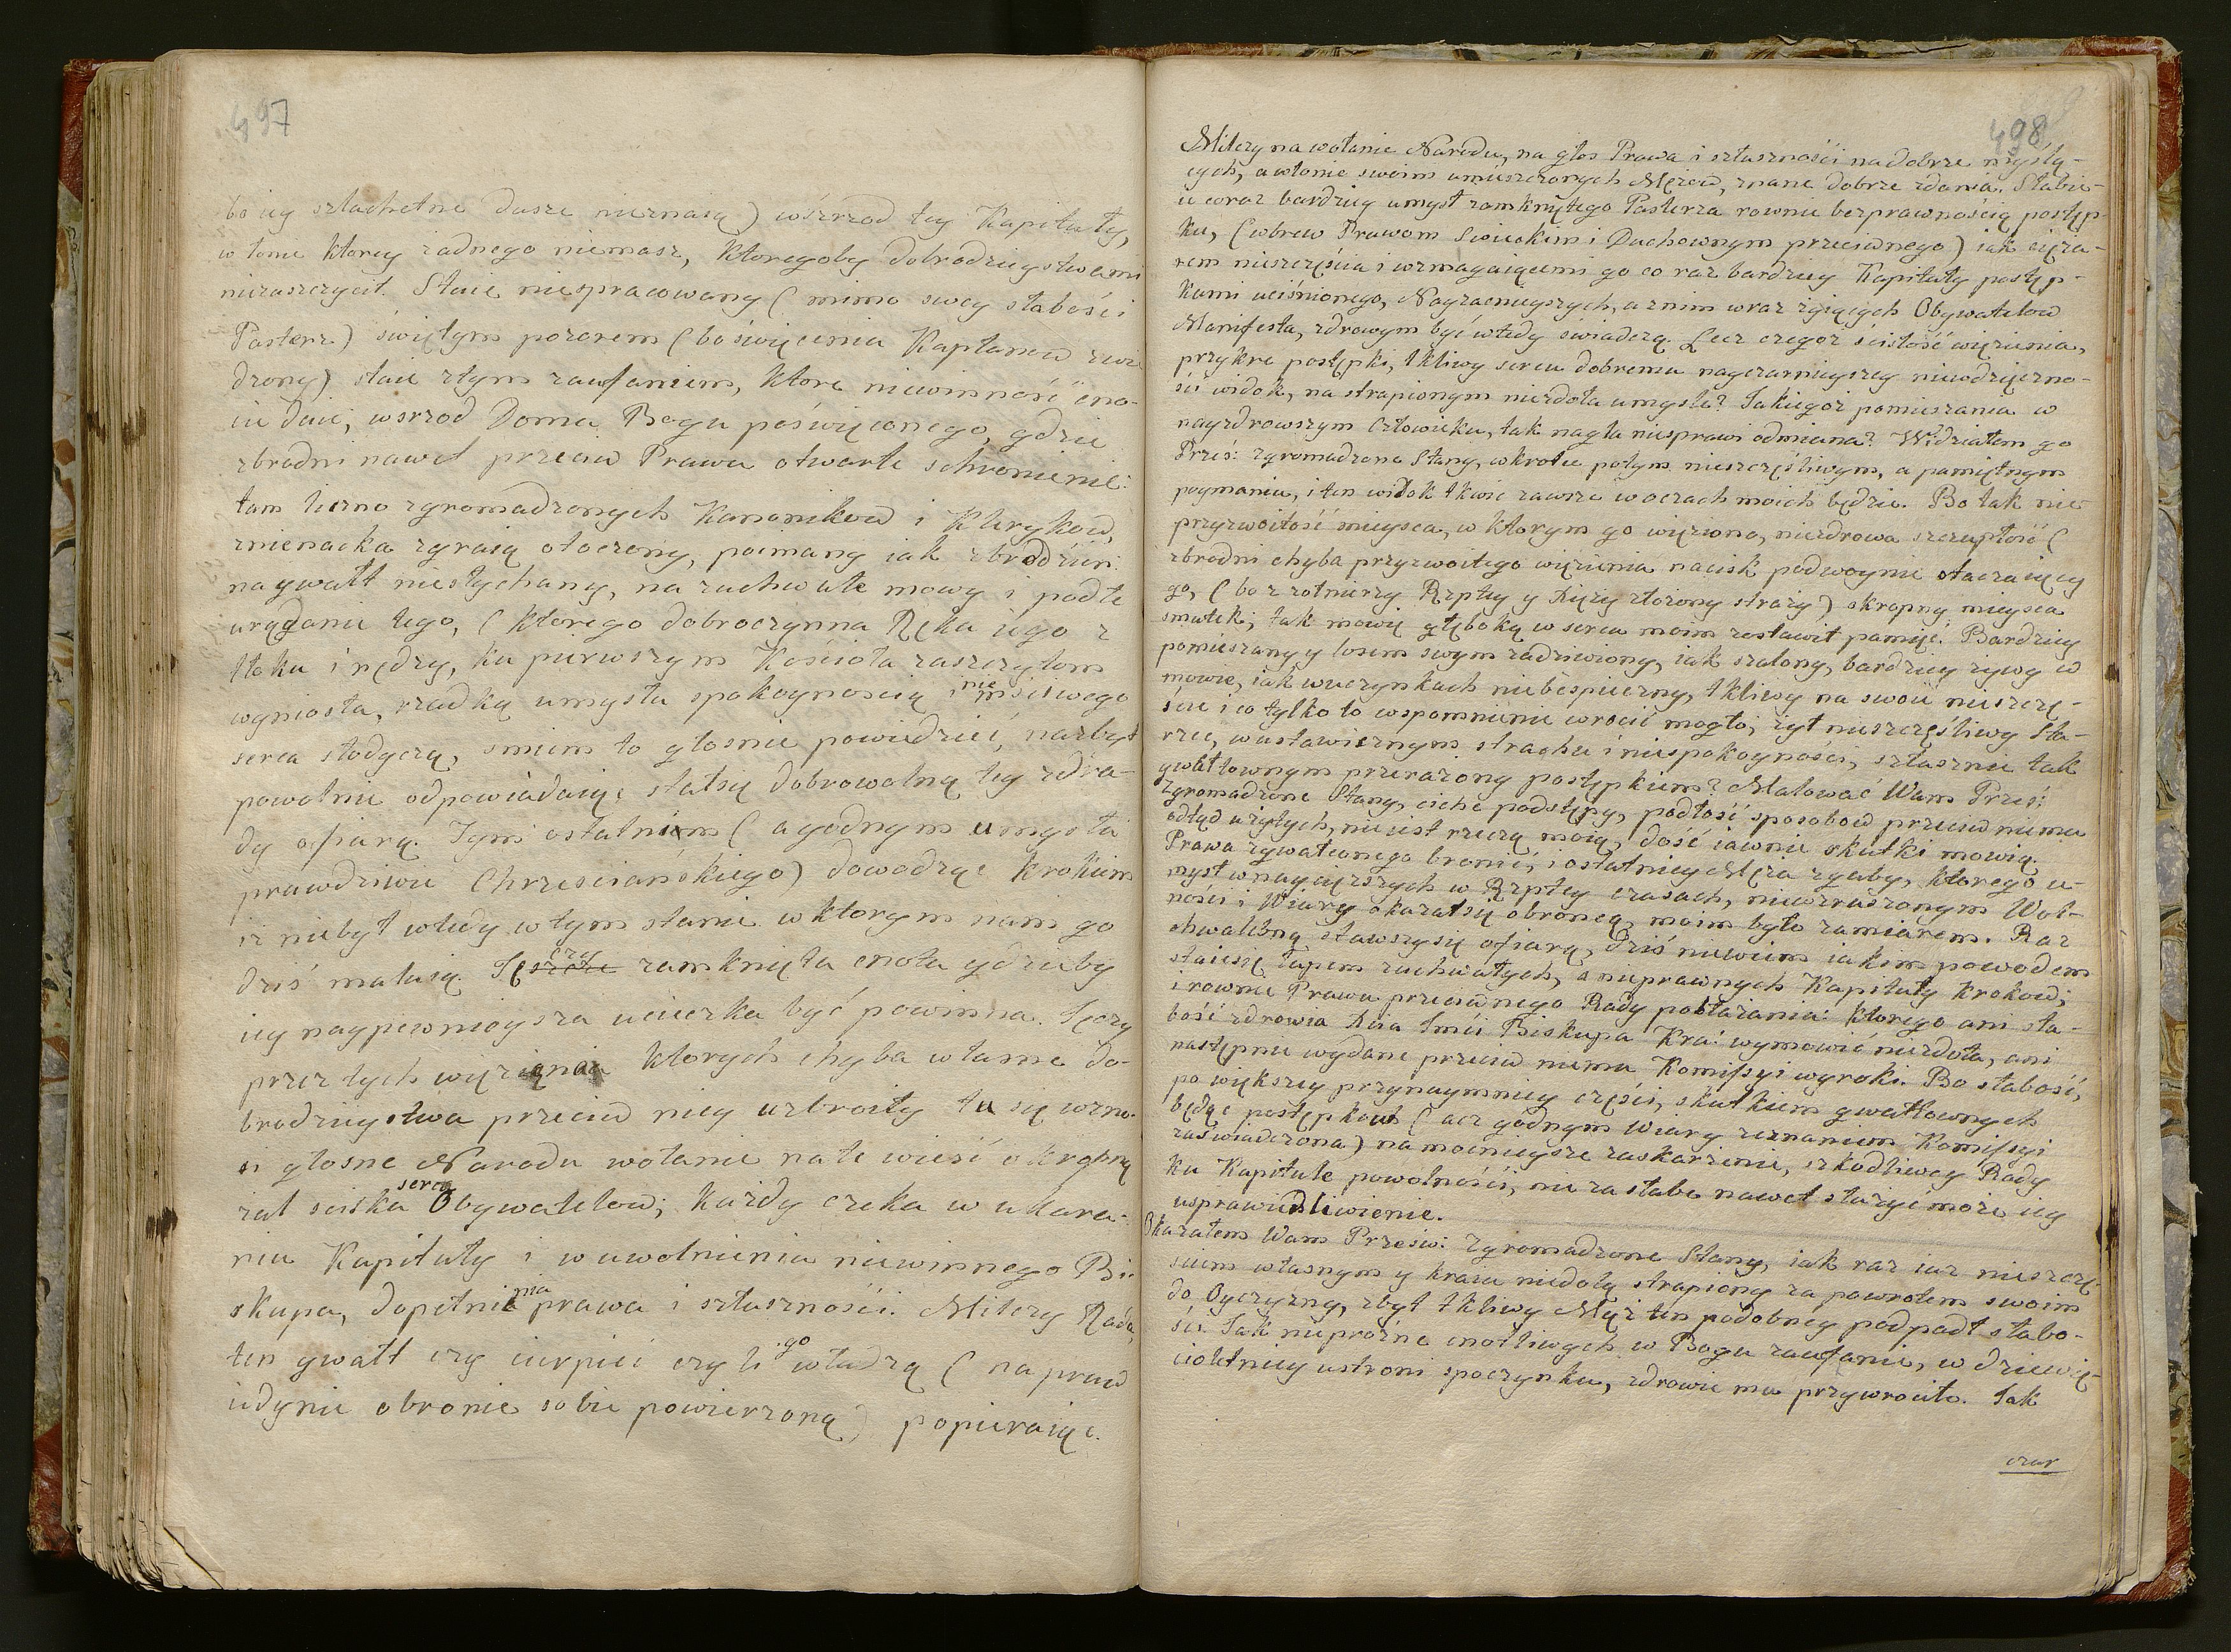 497
bo iey szlachetne dusze nieznaią) wśrzrod tey Kapituły,
w łonie ktorey żadnego niemasz, ktoregoby dobrodzieystwami
niezaszczycił. Staie niespracowany (mimo swey słabości
Pasterz) świętym pozorem (bo święcenia Kapłanow zwie
dzony) staie z tym zaufaniem, ktore niewinność i cno-
cie daie, wsrzod Domu Bogu poświęconego, gdzie
zbrodni nawet przeciw Prawu otwarte schronienie:
tam liczno zgromadzonych Kanonikow i Klerykow,
znienacka zgraią otoczony, poimany iak zbrodzien
na gwałt niesłychany, na zuchwałe mowy i podłe
urąganie tego, (ktorego dobroczynna Ręka iego z
tłoku i nędzy, ku pierwszym Kościoła zaszczytom
wyniosła, rzadką umysłu spokoynością i nie mściwego
serca słodyczą, smiem to głosnie powiedzieć, nazbyt
powolnie odpowiadaiąc stałsię dobrowolną tey zdra-
dy ofiarą. Tym ostatnim (a godnym umysłu
prawdziwie Chrzescianskiego) dowodząc krokiem
iż niebył wtedy w tym stanie w ktorym nam go
dziś malują. Tęczy zamknięta cnota gdzieby
iey naypewnieysza ucieczka być powinna. Tęczy
przez tych więziona ktorych chyba własne do-
brodzieystwa przeciw niey uzbroiły tu się wzno-
si głosne Narodu wołanie na te wieść okropną
żal sciska serca Obywatelow; każdy czeka w ukara-
niu Kapituły i w uwolnieniu niewinnego Bi-
skupa, dopełnienia prawa i szłuszności. Milczy Rada,
ten gwałt czy cierpiei czyli go władzą (na praw
iedynie obronie sobie powierzoną) popieraiąc.
498
Milczy na wołanie Narodu, na głos Prawa i szłuszności na dobrze myślą-
cych, a w łonie swoim umieszczonych Mężow, znane dobrze zdania. Słabie-
ie coraz bardziey umysł zamkniętego Pasterza rownie bezprawnością postęp-
ku, (wbrew Prawom Swieckim i Duchownym przeciwnego) iak cięża-
rem nieszczęścia i wzmagaiącemi go co raz bardziey Kapituły postęp-
kami uciśnionego, Nayzacnieyszych, a znim wraz żyiących Obywatelow
Manifesta, zdrowym być wtedy swiadczą. Lecz czegoż ścisłość więzienia,
przykre postępki, tkliwy sercu dobremu nayczarnieyszey niewdzięczno-
ści widok, na strapionym niezdoła umysle? Jakiegoż pomieszania w
nayzdrowszym Człowieku, tak nagła niesprawi odmiana? Widziałem go
Prześ: zgromadzone Stany, wkrotce potym nieszczęśliwym, a pamiętnym
poymaniu, i ten widok tkwić zawsze w oczach moich będzie. Bo tak nie
przyzwoitość mieysca, w ktorym go więziono, niezdrowa szczupłość (
zbrodni chyba przyzwoitego więzienia nacisk podwoynie otaczaiącey
go, (bo z żołnierzy Rzpltey y Xięży złożoney straży) okropny mieysca
smutek; tak mowię głęboką w sercu moim zostawił pamięć. Bardziey
pomieszany y losem swym zadziwiony, iak szalony, bardziey żywy w
mowie, iak w uczynkach niebespieczny, tkliwy na swoie nieszczę-
ście i co tylko to wspomnienie wrocić mogło; żył nieszczęśliwy Sta-
rzec, w ustawicznym strachu i niespokoyności, szłusznie tak
gwałtownym przerażony postępkiem? Malować Wam Prześ:
Zgromadzone Stany, ciche podstępy, podłość sposobow przeciw niemu
odtąd użytych, nie iest rzeczą moią, dość iawnie skutki mowią.
Prawa zgwałconego bronić, i ostatniey Męża zguby, ktorego u-
mysł w naycięższych w Rzpltey czasach, niewzruszonym Wol-
ności i Wiary okazałsię obroncą, moim było zamiarem. Raz
chwalebną stawszy się ofiarą, dziś niewiem iakim powodem
staiesię łupem zuchwałych, a nieprawnych Kapituły krokow;
i rownie Prawu przeciwnego Rady pobłażania: ktorego ani sła-
bość zdrowia Xcia Jmći Biskupa Kra: wymowić niezdoła, ani
następnie wydane przeciw niemu Komissyi wyroki. Bo słabość,
po większey przynaymniey części, skutkiem gwałtownych
będąc postępkow (acz godnym Wiary zeznaniem Komissyi
zaświadczona) na mocnieysze zaskarżenie, szkodliwey Rady
ku Kapitule powolności, nie za słabe nawet służyć może iey
usprawiedliwienie.
Okazałem Wam Prześw: Zgromadzone Stany, iak raz iuż nieszczę-
ściem własnym y kraiu niedolą strapiony za powrotem swoim
do Oyczyzny, zbyt tkliwy Mąż ten podobney podpadł słabo-
ści. Jak nieprożne cnotliwych w Bogu zaufanie, w dziewię-
cioletniey ustroni spoczynku, zdrowie mu przywrociło. Jak
czas